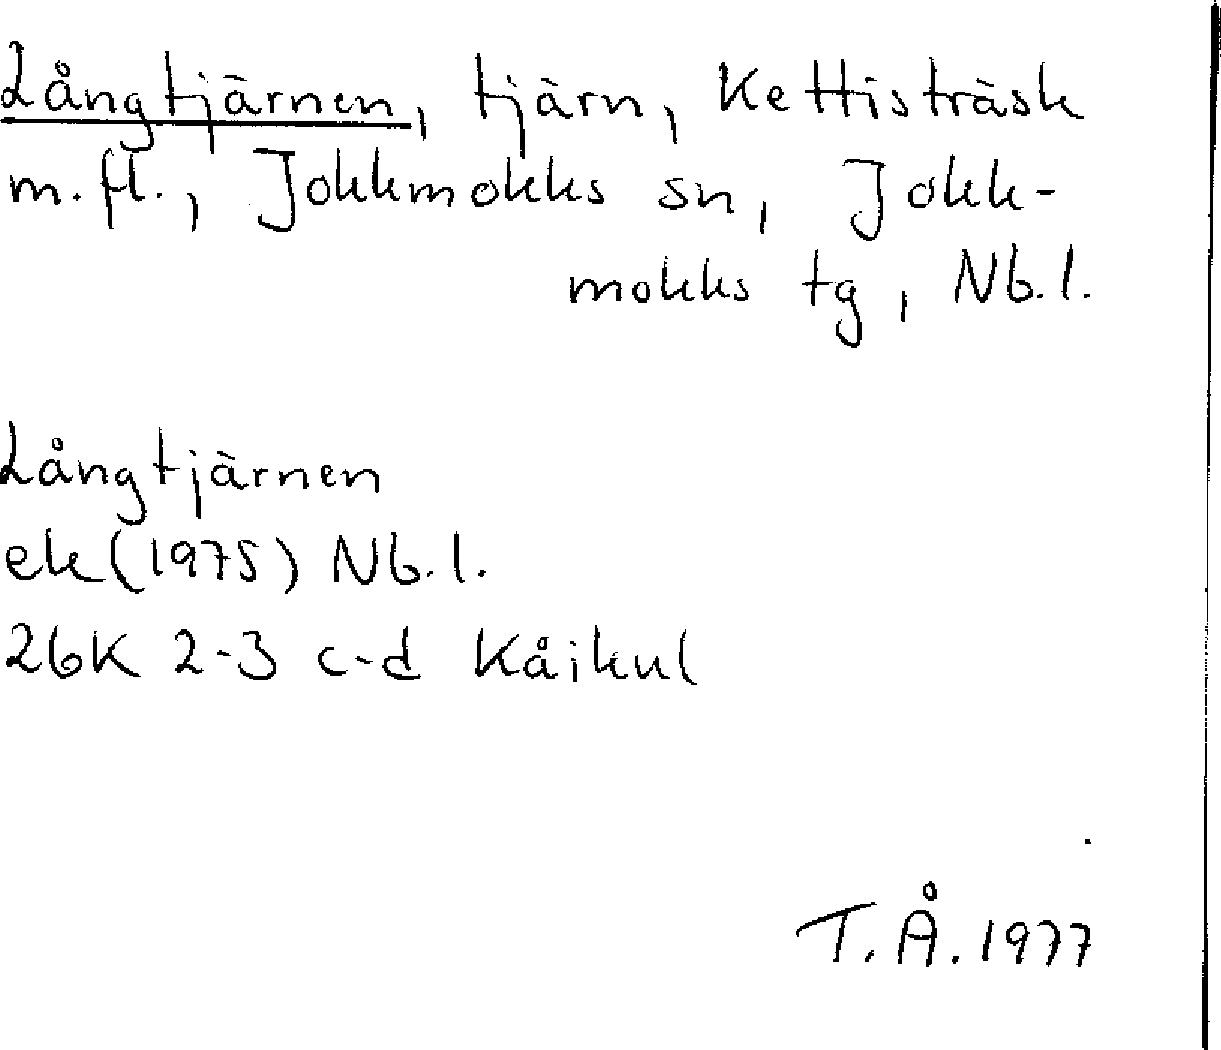 Långtjärnen, tjärn, Kettisträsk
m.fl., Jokkmokks sn, Jokk-
mokks tg, Nb.l.
Långtjärnen
ek (1975) Nb.l.
26K 2-3 c-d Kåikul
T.Å. 1977